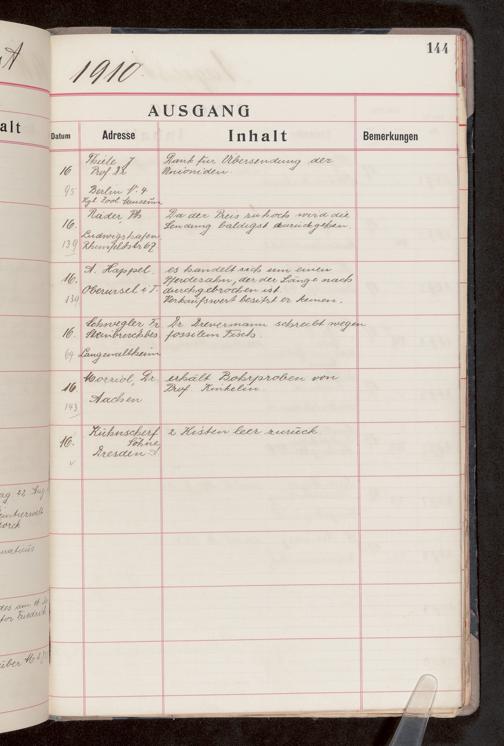 144
1910
AUSGANG
Datum Adresse Inhalt Bemerkungen
16 Thiele J Dank für Übersendung der
Prof Dr Unioniden.
95 Berlin N. 4
Kgl. Zool. Museum
16. Rader, Th Da der Preis zu hoch wird die
Sendung baldigst zurückgehen.
Ludwigshafen
139 Rhumfeldstr 67
16. A. Happel es handelt sich um einen
Pferdezahn, der der Länge nach
Oberursel i T. durchgebrochen ist
139 Verkaufswert besitzt er keinen.
16. Schwegler Fr Dr Drevermann schreibt wegen
Steinbruchbes fossilem Fisch.
69 Langenaltheim
16 Dr. erhält Bohrproben von
Prof. Kinkelin
143 Aachen
16. Kühnscherf 2 Kisten leer zurück
Söhne
Dresden A
alt